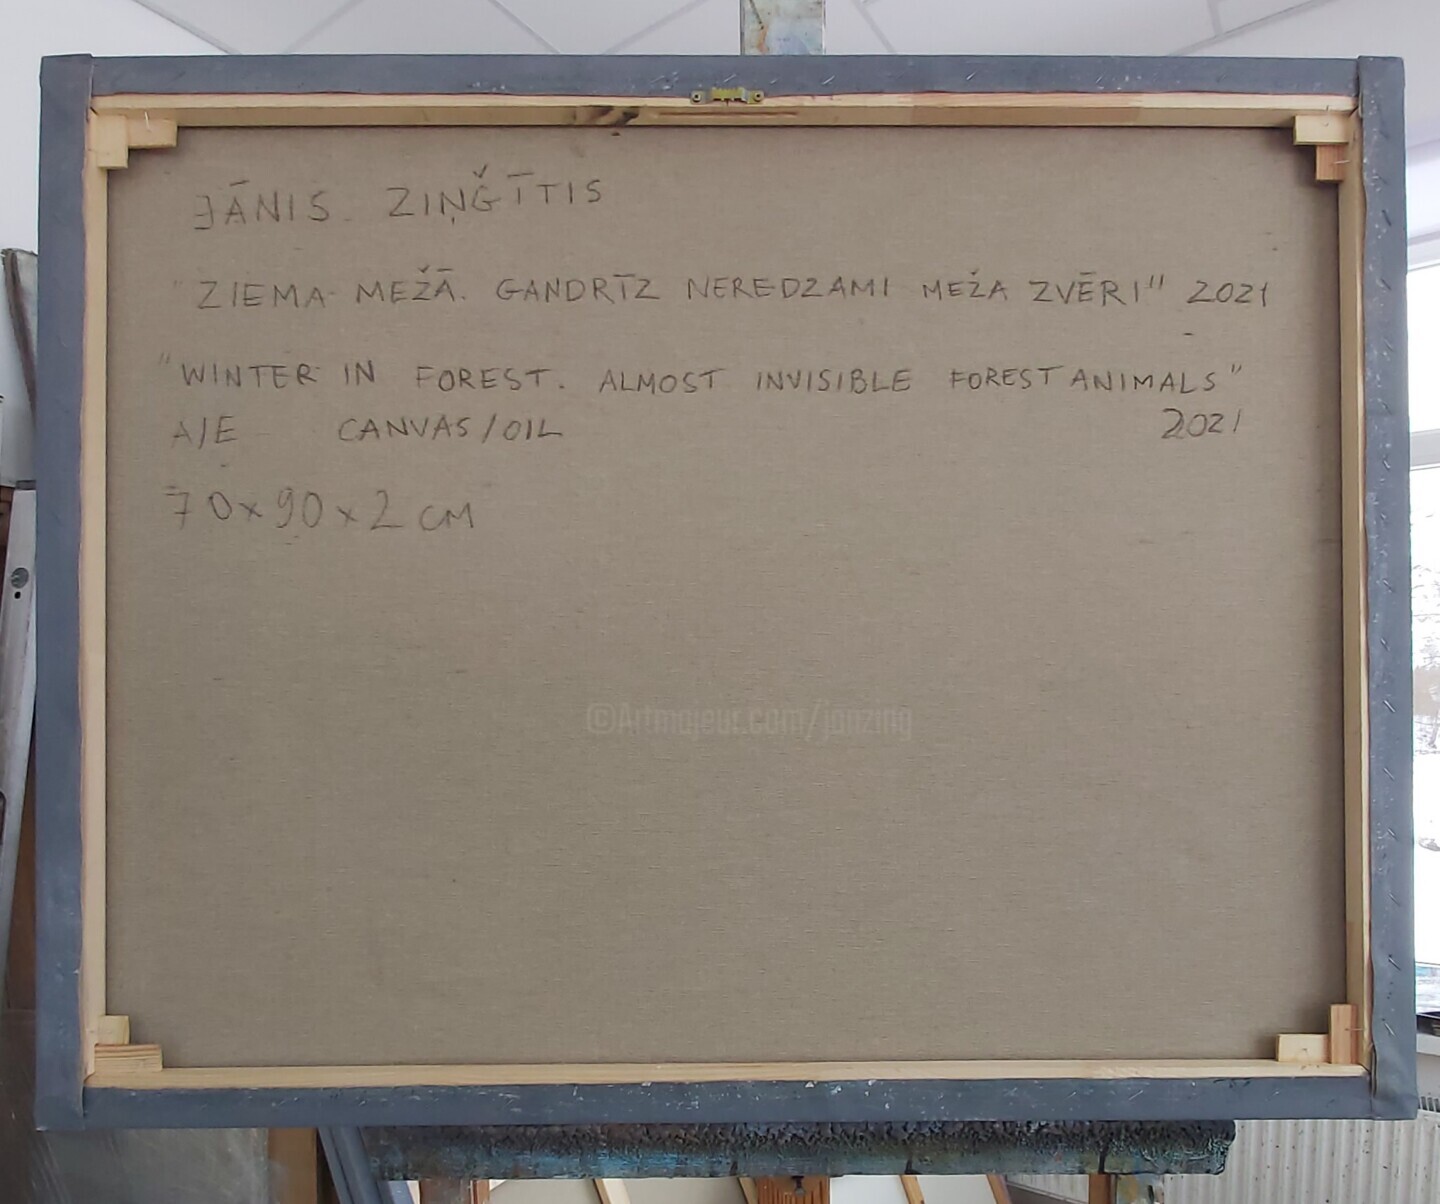 JĀNIS. ZIŅĢĪTIS
"ZIEMA MEŽĀ. GANDRĪZ NEREDZAMI MEŽA ZVĒRI" 2021
"WINTER IN FOREST. ALMOST INVISIBLE FOREST ANIMALS"
A/E CANVAS/OIL 2021
70x90x2 CM
©Artmajeur.com/janzing